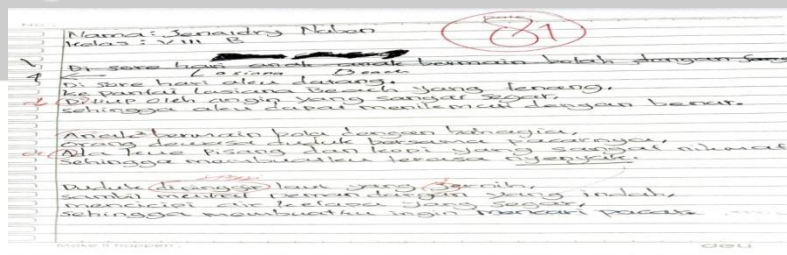 Nama : Jenaidry Naban
Kelas : VIII B
81
Di sore hari anak anak bermain bolah dangan
Lasiana Beach
Di sore hari aku datang,
ke pantai Lasiana Beach yang tenang,
Ditiup oleh angin yang sangat segar,
sehingga aku dapat menikmati dengan benar.
Anak² bermain bola dengan bahagia,
orang dewasa duduk bersama pacarnya,
Ada Teue Pisang dan kopi yang sangat nikmat
sehingga membuatku terasa nyenyak.
Duduk dipinggir laut yang jernih,
sambil melihat pemandangan yang indah,
mencicipi air kelapa yang segar,
sehingga membuatku ingin mencari pacar.
Make it happen
deli